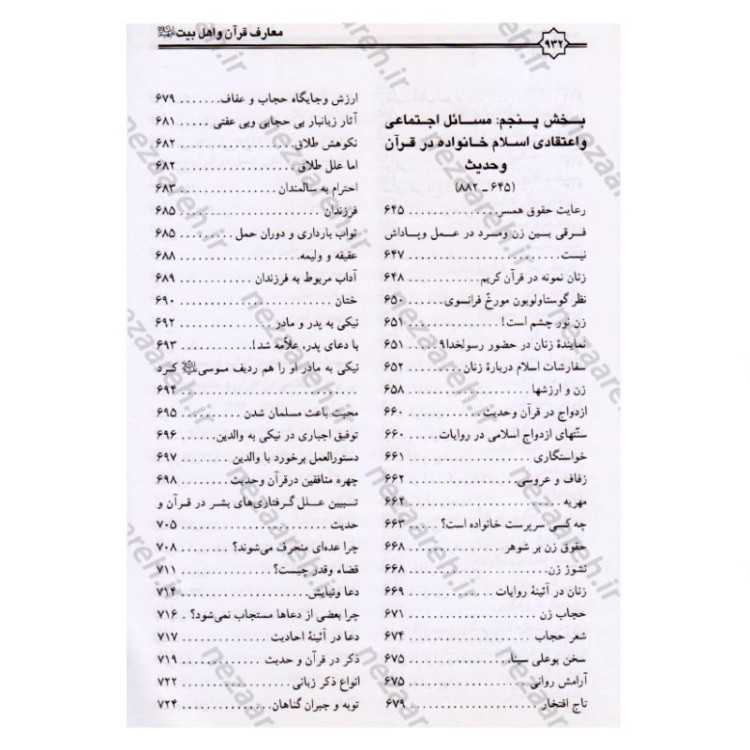 ۹۳۲
معارف قرآن و اهل بیت
بخش پنجم: مسائل اجتماعی
و اعتقادی اسلام خانواده در قرآن
وحدیث
(۶۴۵ ـ ۸۸۲)
رعایت حقوق همسر ........ ۶۴۵
فرقی بین زن ومرد در عمل وپاداش
نیست ........ ۶۴۷
زنان نمونه در قرآن کریم ........ ۶۴۸
نظر گوستاولوبون مورخ فرانسوی ........ ۶۵۰
زن نور چشم است! ........ ۶۵۱
نمایندهٔ زنان در حضور رسولخدا ........ ۶۵۱
سفارشات اسلام دربارهٔ زنان ........ ۶۵۲
زن و ارزشها ........ ۶۵۸
ازدواج در قرآن وحدیث ........ ۶۶۰
سنّتهای ازدواج اسلامی در روایات ........ ۶۶۰
خواستگاری ........ ۶۶۱
زفاف و عروسی ........ ۶۶۲
مهریه ........ ۶۶۲
چه کسی سرپرست خانواده است؟ ........ ۶۶۳
حقوق زن بر شوهر ........ ۶۶۸
نشوز زن ........ ۶۶۸
زنان در آئینهٔ روایات ........ ۶۶۹
حجاب زن ........ ۶۷۱
شعر حجاب ........ ۶۷۴
سخن بوعلی سینا ........ ۶۷۵
آرامش روانی ........ ۶۷۵
تاج افتخار ........ ۶۷۹
ارزش وجایگاه حجاب و عفاف ........ ۶۷۹
آثار زیانبار بی حجابی وبی عفتی ........ ۶۸۱
نکوهش طلاق ........ ۶۸۲
اما علل طلاق ........ ۶۸۲
احترام به سالمندان ........ ۶۸۳
فرزندان ........ ۶۸۵
ثواب بارداری و دوران حمل ........ ۶۸۵
عقیقه و ولیمه ........ ۶۸۸
آداب مربوط به فرزندان ........ ۶۸۹
ختان ........ ۶۹۰
نیکی به پدر و مادر ........ ۶۹۲
با دعای پدر، علاّمه شد! ........ ۶۹۳
نیکی به مادر او را هم ردیف موسی کرد
........ ۶۹۴
محبت باعث مسلمان شدن ........ ۶۹۵
توفیق اجباری در نیکی به والدین ........ ۶۹۶
دستورالعمل برخورد با والدین ........ ۶۹۷
چهره منافقین درقرآن وحدیث ........ ۶۹۸
تبیین علل گرفتاری‌های بشر در قرآن و
حدیث ........ ۷۰۵
چرا عده‌ای منحرف می‌شوند؟ ........ ۷۰۸
قضاء وقدر چیست؟ ........ ۷۱۱
دعا ونیایش ........ ۷۱۴
چرا بعضی از دعاها مستجاب نمی‌شود؟ ........ ۷۱۶
دعا در آئینهٔ احادیث ........ ۷۱۷
ذکر در قرآن و حدیث ........ ۷۱۹
انواع ذکر زبانی ........ ۷۲۲
توبه و جبران گناهان ........ ۷۲۴
nezaareh.ir